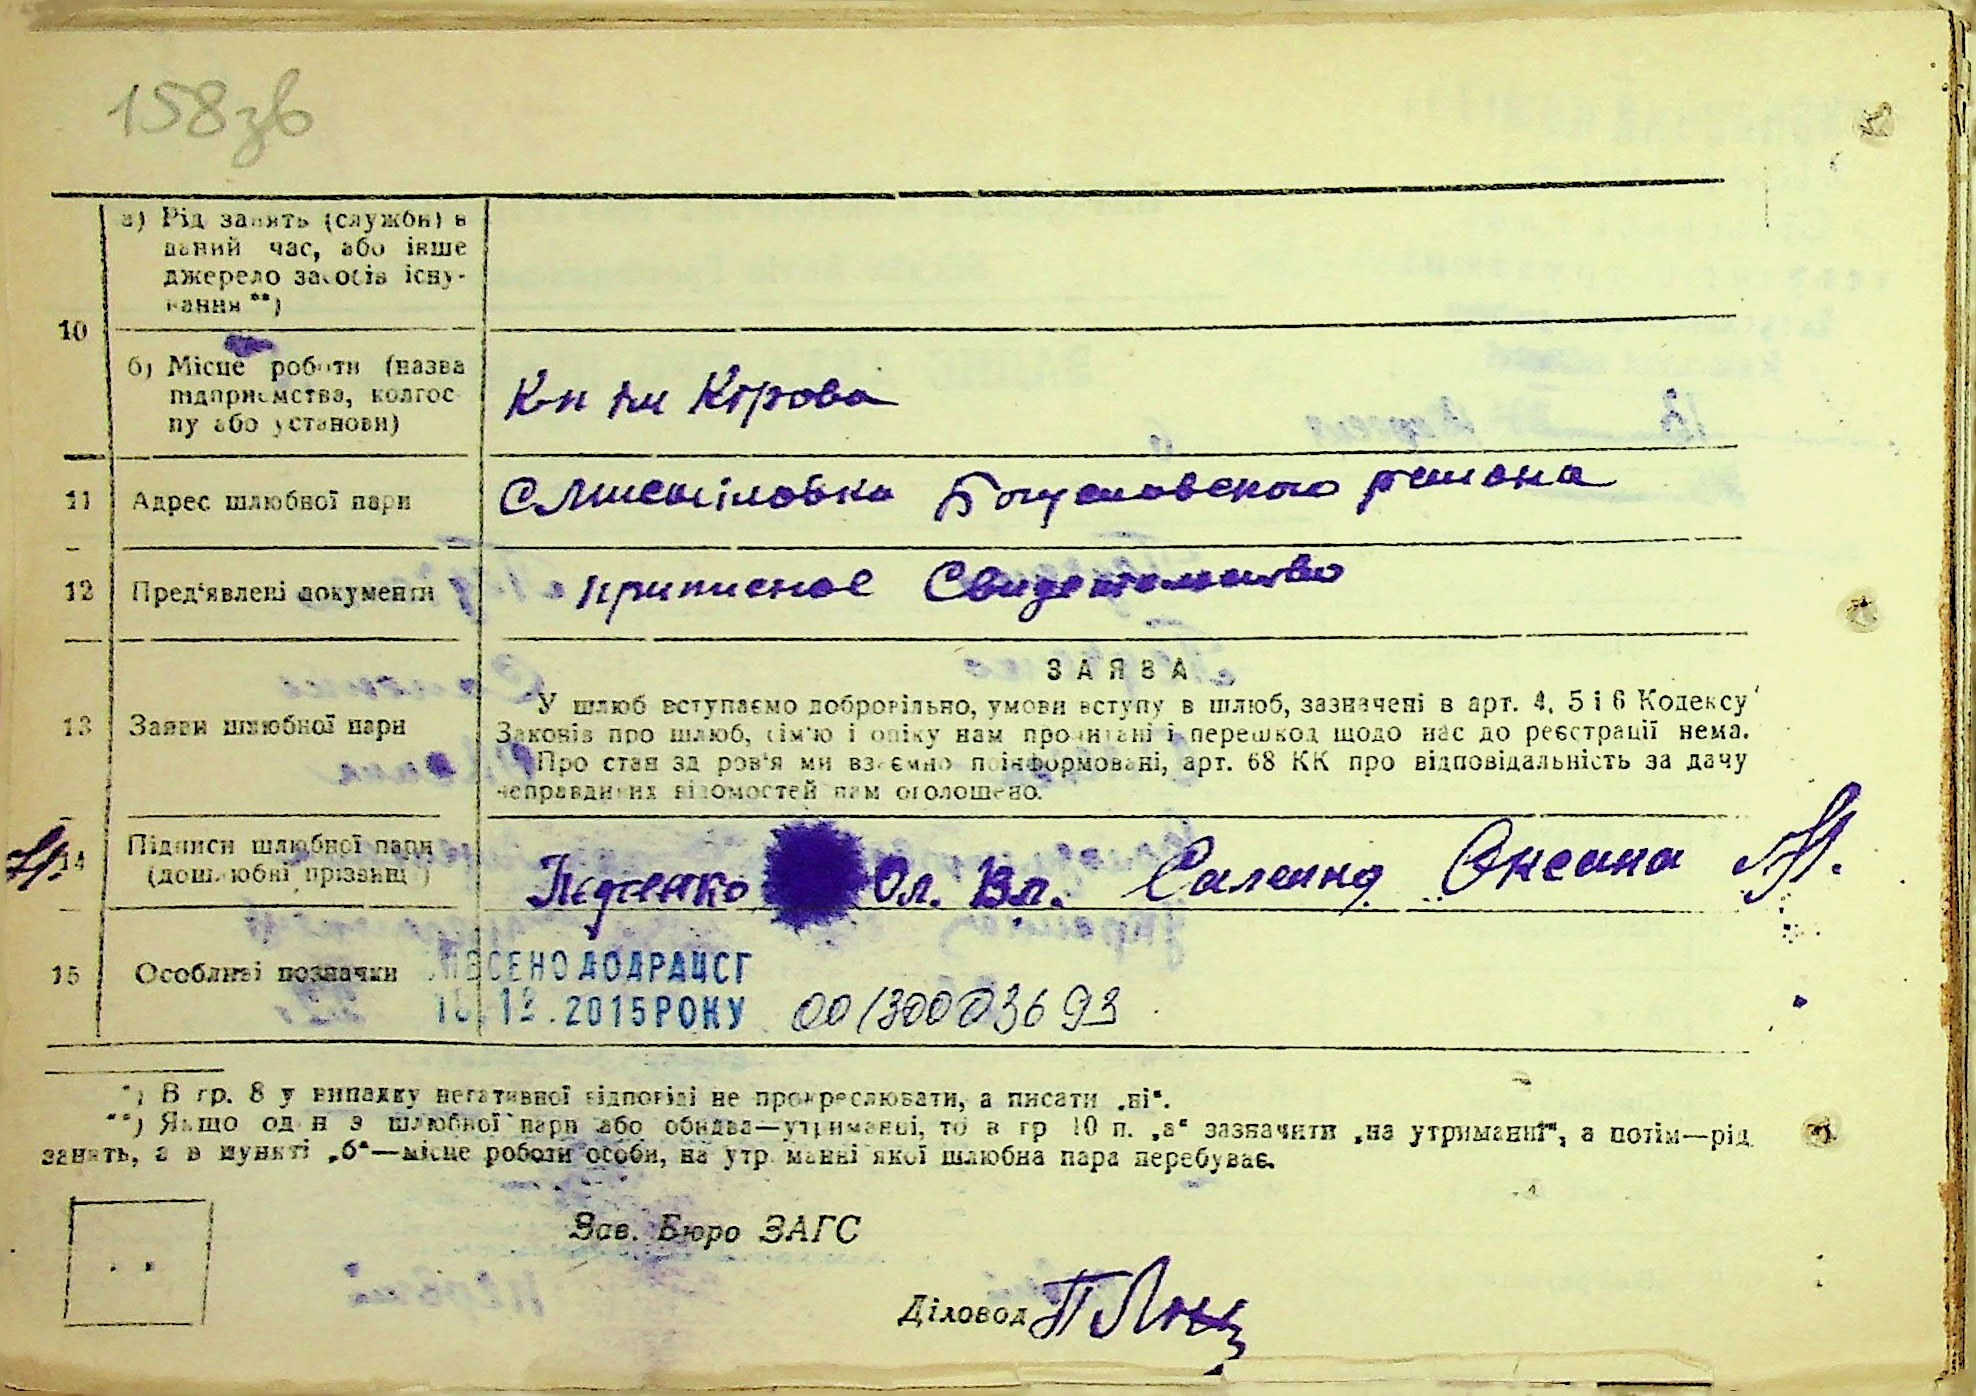 158зв
10
а) Рід занять (служби) в
даний час, або інше
джерело засобів існу-
вання **)
б) Місце роботи (назва
підприємства, колгос-
пу або установи)
К-п им Кірова
11 Адрес шлюбної пари
Богуславского района
12 Пред'явлені документи
приписное Свидетельство
13 Заяви шлюбної пари
ЗАЯВА
У шлюб вступаємо добровільно, умови вступу в шлюб, зазначені в арт. 4, 5 і 6 Кодексу
Законів про шлюб, сім'ю і опіку нам прочитані і перешкод щодо нас до реєстрації нема.
Про стан здоров'я ми взаємно поінформовані, арт. 68 КК про відповідальність за дачу
неправдивих відомостей нам оголошено.
14 Підписи шлюбної пари
(дошлюбні прізвища)
Ол. Вл. Оксана
15 Особливі позначки
ВНЕСЕНО ДО ДРАЦСГ
12.2015 РОКУ 00130003693
*) В гр. 8 у випадку негативної відповіді не прокреслювати, а писати „ні“.
**) Якщо один з шлюбної пари або обидва—утриманці, то в гр 10 п. „а“ зазначити „на утриманні“, а потім—рід
занять, а в пункті „б“—місце роботи особи, на утриманні якої шлюбна пара перебуває.
Зав. Бюро ЗАГС
Діловод